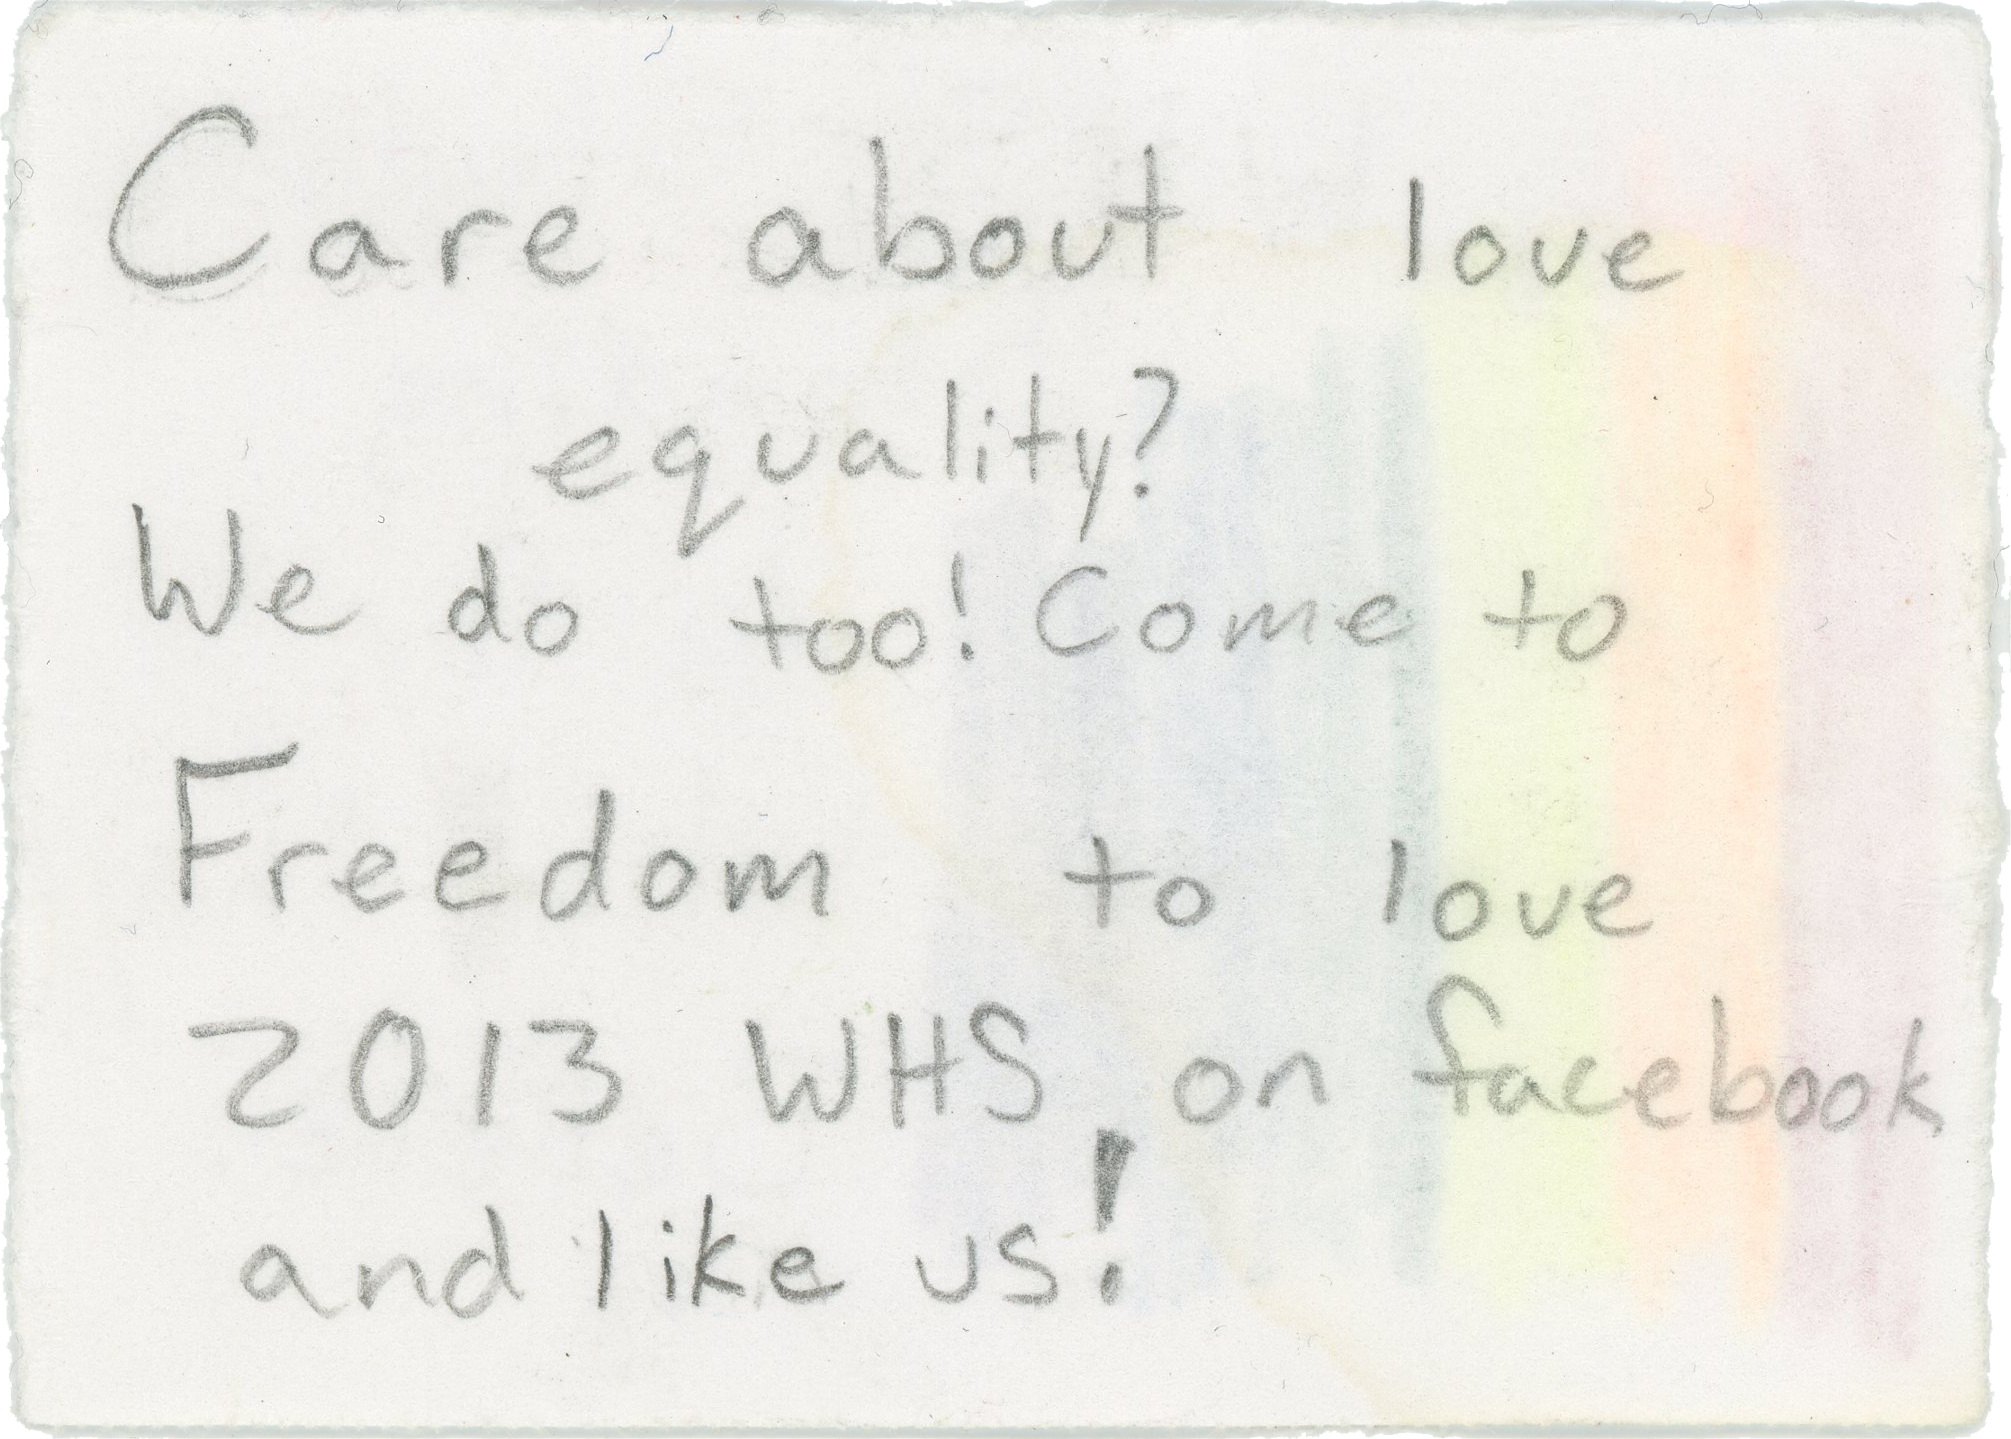 Care about love
equality?
We do too! Come to
Freedom to love
2013 WHS on facebook
and like us!